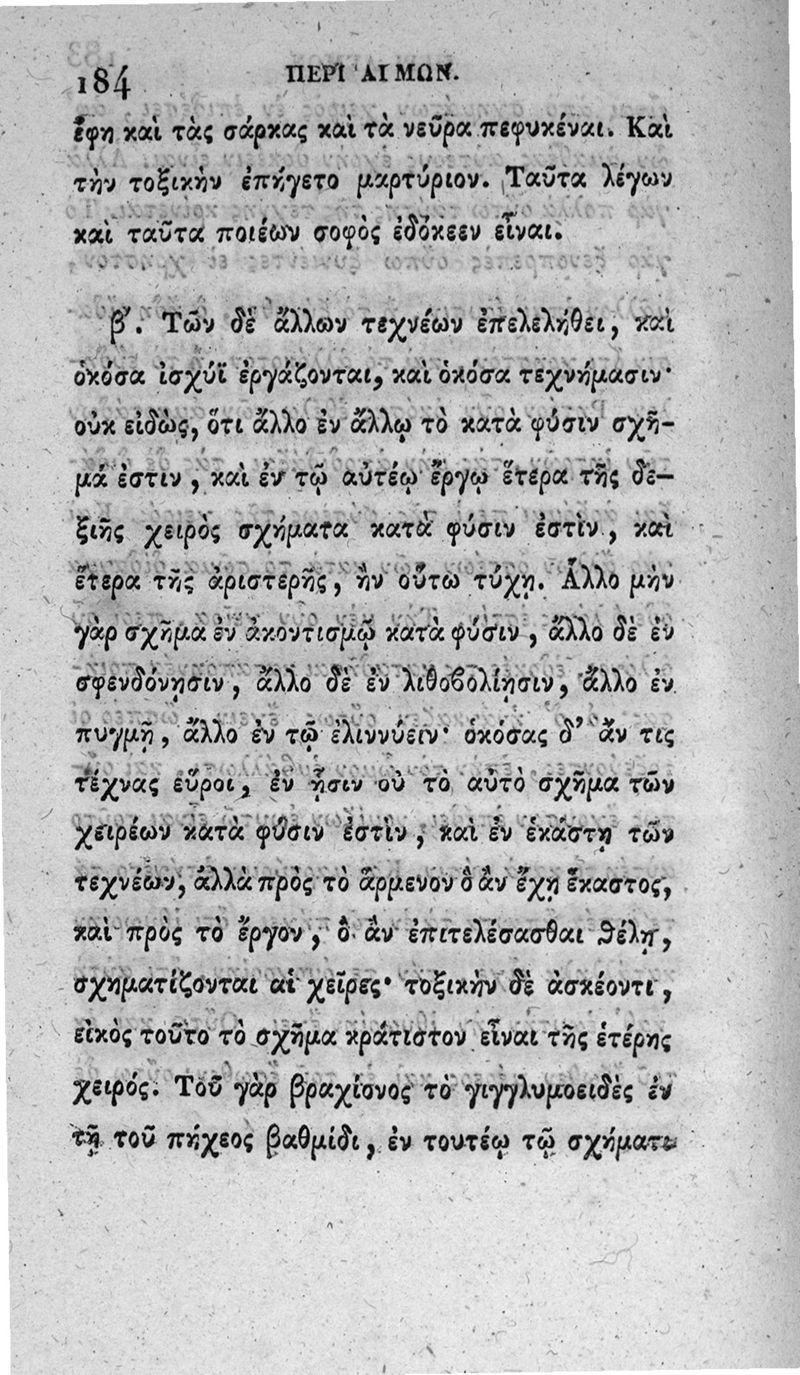 184 ΠΕΡΙ ΑΓΜΩΝ.
ἔφη καὶ τὰς σάρκας καὶ τὰ νεῦρα πεφυκέναι. Καὶ
τὴν τοξικὴν ἐπήγετο μαρτύριον. Ταῦτα λέγων
καὶ ταῦτα ποιέων σοφὸς ἐδόκεεν εἶναι.
β'. Τῶν δὲ ἄλλων τεχνέων ἐπελελήθει, καὶ
ὁκόσα ἰσχύϊ ἐργάζονται, καὶ ὁκόσα τεχνήμασιν·
οὐκ εἰδὼς, ὅτι ἄλλο ἐν ἄλλῳ τὸ κατὰ φύσιν σχῆ-
μά ἐστιν, καὶ ἐν τῷ αὐτέῳ ἔργῳ ἕτερα τῆς δε-
ξιῆς χειρὸς σχήματα κατὰ φύσιν ἐστὶν, καὶ
ἕτερα τῆς ἀριστερῆς, ἢν οὕτω τύχῃ. Ἄλλο μὴν
γὰρ σχῆμα ἐν ἀκοντισμῷ κατὰ φύσιν, ἄλλο δὲ ἐν
σφενδόνησιν, ἄλλο δὲ ἐν λιθοβολίῃσιν, ἄλλο ἐν
πυγμῇ, ἄλλο ἐν τῷ ἐλιννύειν· ὁκόσας δ' ἄν τις
τέχνας εὕροι, ἐν ᾗσιν οὐ τὸ αὐτὸ σχῆμα τῶν
χειρέων κατὰ φύσιν ἐστὶν, καὶ ἐν ἑκάστῃ τῶν
τεχνέων, ἀλλὰ πρὸς τὸ ἅρμενον ὃ ἂν ἔχῃ ἕκαστος,
καὶ πρὸς τὸ ἔργον, ὃ ἂν ἐπιτελέσασθαι θέλῃ,
σχηματίζονται αἱ χεῖρες· τοξικὴν δὲ ἀσκέοντι,
εἰκὸς τοῦτο τὸ σχῆμα κράτιστον εἶναι τῆς ἑτέρης
χειρός. Τοῦ γὰρ βραχίονος τὸ γιγγλυμοειδὲς ἐν
τῇ τοῦ πήχεος βαθμίδι, ἐν τουτέῳ τῷ σχήματι